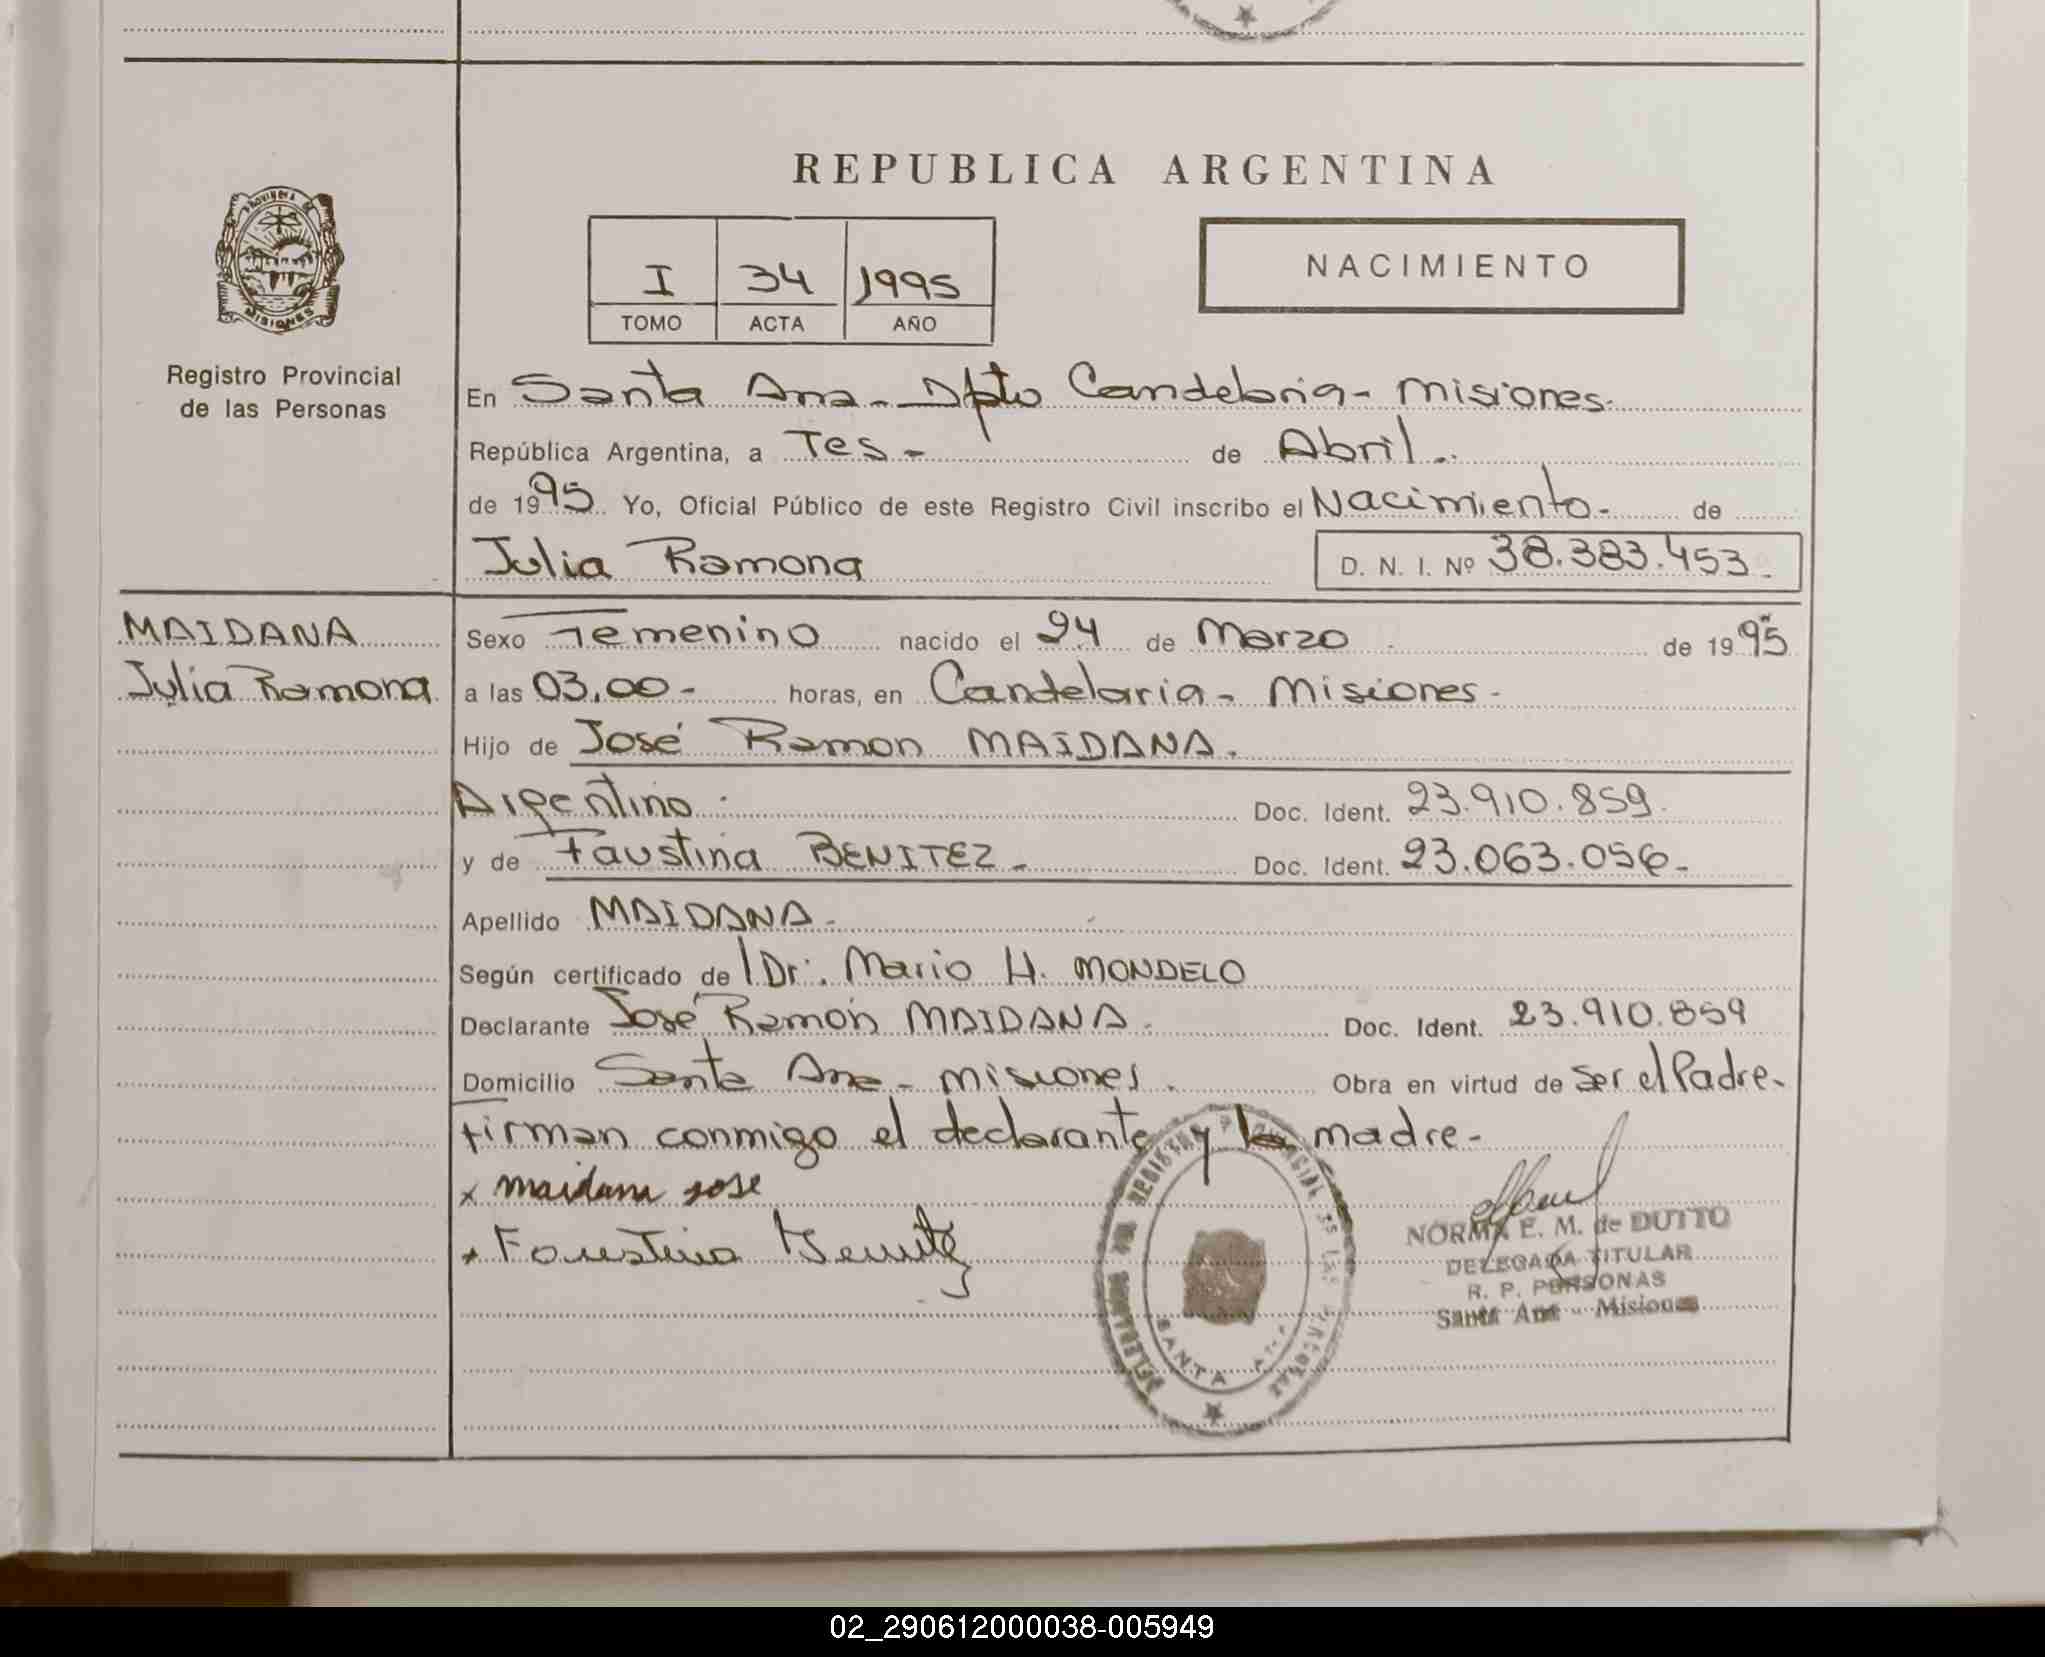 REPUBLICA ARGENTINA
PROVINCIA DE
MISIONES
Registro Provincial
de las Personas
I 34 1995
TOMO ACTA AÑO
NACIMIENTO
En Santa Ana - Dpto Candelaria - Misiones.
República Argentina, a Tes - de Abril.
de 1995. Yo, Oficial Público de este Registro Civil inscribo el Nacimiento - de
Julia Ramona D. N. I. Nº 38.383.453.
MAIDANA
Julia Ramona
Sexo Femenino nacido el 24 de Marzo de 1995
a las 03,00 - horas, en Candelaria - Misiones -
Hijo de José Ramon MAIDANA.
Argentino. Doc. Ident. 23.910.859.
y de Faustina BENITEZ - Doc. Ident. 23.063.056 -
Apellido MAIDANA -
Según certificado de Dr. Mario H. MONDELO
Declarante José Ramón MAIDANA. Doc. Ident. 23.910.859
Domicilio Santa Ana - Misiones. Obra en virtud de Ser el Padre -
Firman conmigo el declarante y la madre -
x maidana jose
x Faustina Benitez
NORMA E. M. de DUTTO
DELEGADA TITULAR
R. P. PERSONAS
Santa Ana - Misiones
SANTA ANA
02_290612000038-005949